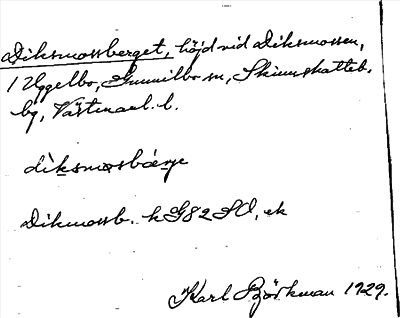 Diksmossberget, höjd vid Diksmossen,
1 Uggelbo, Gunnilbo sn, Skinnskatteb.
bg, Västmanl. l.
diksmosbärje
Dikmossb. kG82SO, ek
Karl Björkman 1929.